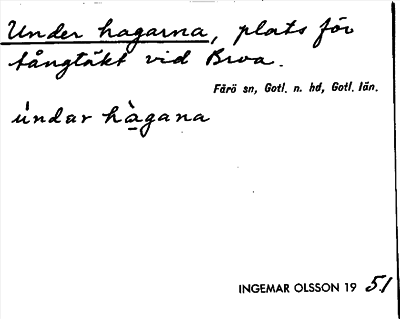 Under hagarna, plats för
tångtäkt vid Broa.
Fårö sn, Gotl. n. hd, Gotl. län.
úndar hà̱gana
INGEMAR OLSSON 19 51